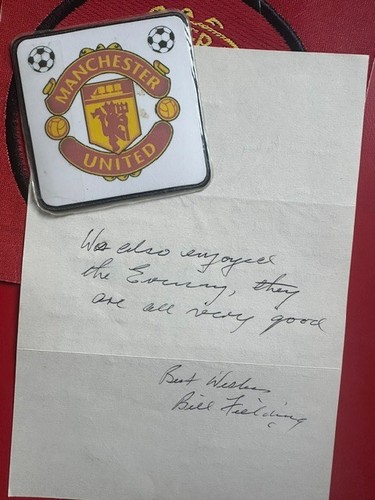 MANCHESTER
UNITED
We also enjoyed
the Evening, they
are all very good
Best Wishes
Bill Fielding